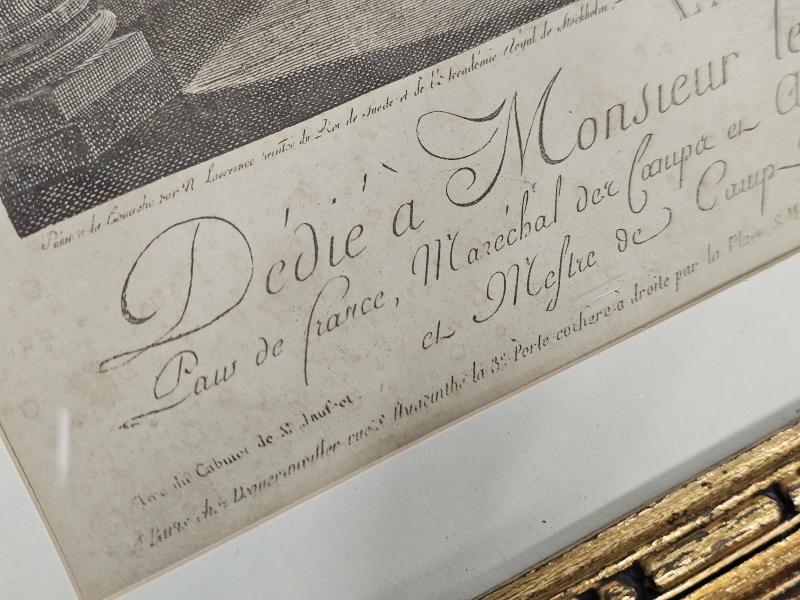 Peint à la Gouache par N Lawrence peintre du Roi de Suede et de l'Academie Royal de Stockholm.
Dédié à Monsieur le
Pair de france, Maréchal des Camps et
et Mestre de Camp
Tiré du Cabinet de Mr.
A Paris chez rue St. Hyacinthe la 3e. Porte cochere à droite par la Place S. M